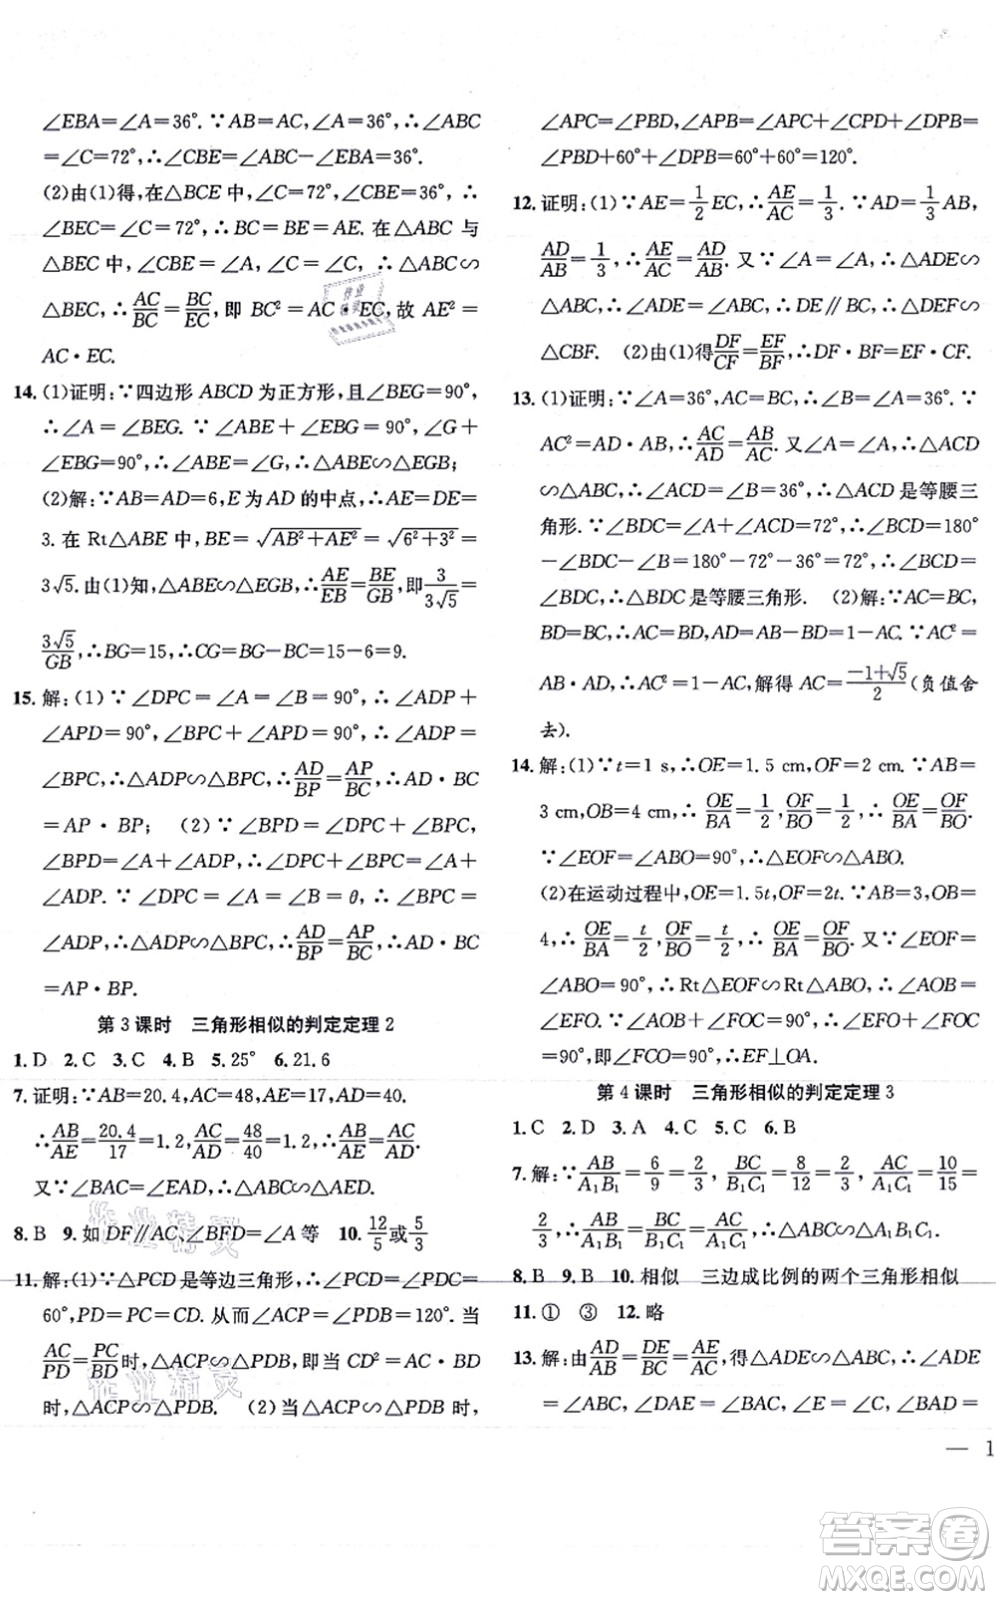 ∠EBA=∠A=36°.∵AB=AC,∠A=36°,∴∠ABC
=∠C=72°,∴∠CBE=∠ABC-∠EBA=36°.
(2)由(1)得,在△BCE中,∠C=72°,∠CBE=36°,∴
∠BEC=∠C=72°,∴BC=BE=AE.在△ABC与
△BEC中,∠CBE=∠A,∠C=∠C,∴△ABC∽
△BEC,∴AC/BC=BC/EC,即BC²=AC·EC,故AE²=
AC·EC.
14.(1)证明:∵四边形ABCD为正方形,且∠BEG=90°,
∴∠A=∠BEG.∵∠ABE+∠EBG=90°,∠G+
∠EBG=90°,∴∠ABE=∠G,∴△ABE∽△EGB;
(2)解:∵AB=AD=6,E为AD的中点,∴AE=DE=
3.在Rt△ABE中,BE=√(AB²+AE²)=√(6²+3²)=
3√5.由(1)知,△ABE∽△EGB,∴AE/EB=BE/GB,即3/(3√5)=
3√5/GB,∴BG=15,∴CG=BG-BC=15-6=9.
15.解:(1)∵∠DPC=∠A=∠B=90°,∴∠ADP+
∠APD=90°,∠BPC+∠APD=90°,∴∠ADP=
∠BPC,∴△ADP∽△BPC,∴AD/BP=AP/BC,∴AD·BC
=AP·BP; (2)∵∠BPD=∠DPC+∠BPC,
∠BPD=∠A+∠ADP,∴∠DPC+∠BPC=∠A+
∠ADP.∵∠DPC=∠A=∠B=θ,∴∠BPC=
∠ADP,∴△ADP∽△BPC,∴AD/BP=AP/BC,∴AD·BC
=AP·BP.
第3课时 三角形相似的判定定理2
1.D 2.C 3.C 4.B 5.25° 6.21.6
7.证明:∵AB=20.4,AC=48,AE=17,AD=40.
∴AB/AE=20.4/17=1.2,AC/AD=48/40=1.2,∴AB/AE=AC/AD.
又∵∠BAC=∠EAD,∴△ABC∽△AED.
8.B 9.如DF∥AC、∠BFD=∠A等 10.12/5或5/3
11.解:(1)∵△PCD是等边三角形,∴∠PCD=∠PDC=
60°,PD=PC=CD.从而∠ACP=∠PDB=120°.当
AC/PD=PC/BD时,△ACP∽△PDB,即当CD²=AC·BD
时,△ACP∽△PDB. (2)当△ACP∽△PDB时,
∠APC=∠PBD,∴∠APB=∠APC+∠CPD+∠DPB=
∠PBD+60°+∠DPB=60°+60°=120°.
12.证明:(1)∵AE=1/2EC,∴AE/AC=1/3.∵AD=1/3AB,
AD/AB=1/3,∴AE/AC=AD/AB.又∵∠A=∠A,∴△ADE∽
△ABC,∴∠ADE=∠ABC,∴DE∥BC,∴△DEF∽
△CBF. (2)由(1)得DF/CF=EF/BF,∴DF·BF=EF·CF.
13.(1)证明:∵∠A=36°,AC=BC,∴∠B=∠A=36°.∵
AC²=AD·AB,∴AC/AD=AB/AC.又∠A=∠A,∴△ACD
∽△ABC,∴∠ACD=∠B=36°,∴△ACD是等腰三
角形.∵∠BDC=∠A+∠ACD=72°,∴∠BCD=180°
-∠BDC-∠B=180°-72°-36°=72°,∴∠BDC=
∠BCD,∴△BCD是等腰三角形. (2)解:∵AC=BC,
BD=BC=1,∴AC=BD,AD=AB-BD=1-AC.∵AC²=
AB·AD,∴AC²=1-AC,解得AC=(-1+√5)/2(负值舍
去).
14.解:(1)∵t=1 s,∴OE=1.5 cm,OF=2 cm.∵AB=
3 cm,OB=4 cm,∴OE/BA=1/2,OF/BO=1/2,∴OE/BA=OF/BO.
∵∠EOF=∠ABO=90°,∴△EOF∽△ABO.
(2)在运动过程中,OE=1.5t,OF=2t.∵AB=3,OB=
4,∴OE/BA=t/2,OF/BO=t/2,∴OE/BA=OF/BO.又∵∠EOF=
∠ABO=90°,∴Rt△EOF∽Rt△ABO,∴∠AOB=
∠EFO.∵∠AOB+∠FOC=90°,∴∠EFO+∠FOC
=90°,即∠FCO=90°,∴EF⊥OA.
第4课时 三角形相似的判定定理3
1.C 2.D 3.A 4.C 5.C 6.B
7.解:∵AB/A₁B₁=6/9=2/3,BC/B₁C₁=8/12=2/3,AC/A₁C₁=10/15=
2/3,∴AB/A₁B₁=BC/B₁C₁=AC/A₁C₁,∴△ABC∽△A₁B₁C₁.
8.B 9.B 10.相似 三边成比例的两个三角形相似
11.① ③ 12.略
13.解:由AD/AB=DE/BC=AE/AC,得△ADE∽△ABC,∴∠ADE
=∠ABC,∠DAE=∠BAC,∠E=∠C,∠BAD=
— 1
作业精灵
作业精灵
作业精灵
答案卷
MXQE.COM